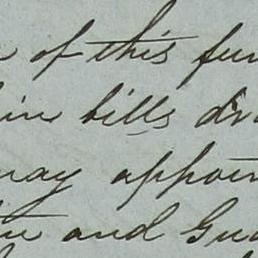 of this fun
in bills dra
may appoin
and Gua